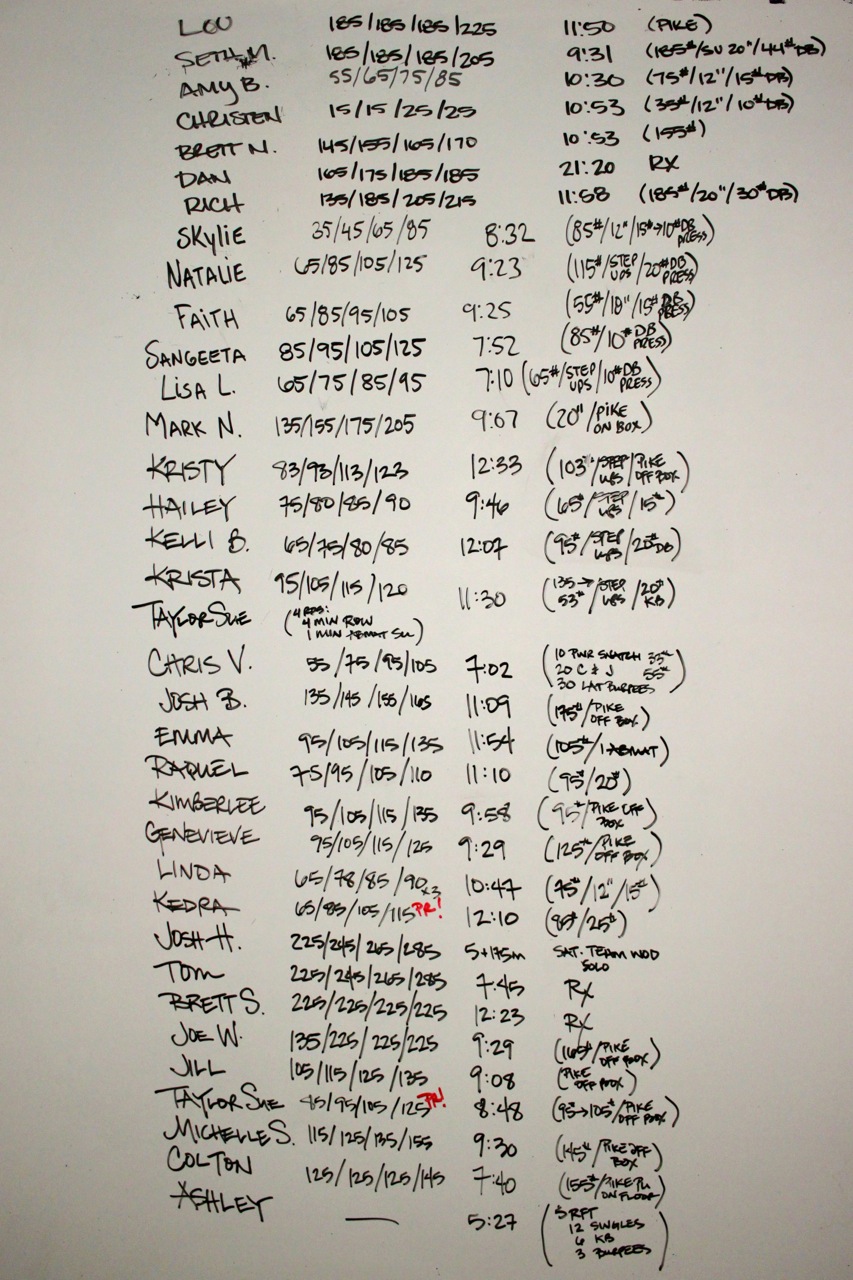 LOU 185/185/185/225 11:50 (PIKE)
SETH M. 185/185/185/205 9:31 (185#/SU 20"/44# DB)
AMY B. 55/65/75/85 10:30 (75#/12"/15# DB)
CHRISTEN 15/15/25/25 10:53 (35#/12"/10# DB)
BRETT N. 145/155/165/170 10:53 (155#)
DAN 165/175/185/185 21:20 RX
RICH 135/185/205/215 11:58 (185#/20"/30# DB)
SKYLIE 35/45/65/85 8:32 (85#/12"/15#→10# DB PRESS)
NATALIE 65/85/105/125 9:23 (115#/STEP UPS/20# DB PRESS)
FAITH 65/85/95/105 9:25 (55#/18"/15# DB PRESS)
SANGEETA 85/95/105/125 7:52 (85#/10# DB PRESS)
LISA L. 65/75/85/95 7:10 (65#/STEP UPS/10# DB PRESS)
MARK N. 135/155/175/205 9:07 (20"/PIKE ON BOX)
KRISTY 83/93/113/123 12:33 (103#/STEP UPS/PIKE OFF BOX)
HAILEY 75/80/85/90 9:46 (65#/STEP UPS/15#)
KELLI B. 65/75/80/85 12:07 (95#/STEP UPS/20# DB)
KRISTA 95/105/115/120 11:30 (135→53#/STEP UPS/20# KB)
TAYLOR SUE (4 RDS:
4 MIN ROW
1 MIN ABMAT SU)
CHRIS V. 55/75/95/105 7:02 (10 PWR SNATCH 35#
20 C & J 55#
30 LAT BURPEES)
JOSH B. 135/145/155/165 11:09 (175#/PIKE OFF BOX)
EMMA 95/105/115/135 11:54 (105#/1 ABMAT)
RAQUEL 75/95/105/110 11:10 (95#/20#)
KIMBERLEE 95/105/115/135 9:58 (95#/PIKE OFF BOX)
GENEVIEVE 95/105/115/125 9:29 (125#/PIKE OFF BOX)
LINDA 65/78/85/90x3 10:47 (75#/12"/15#)
KEDRA 65/85/105/115 PR! 12:10 (85#/25#)
JOSH H. 225/245/265/285 5+175m SAT. TEAM WOD SOLO
TOM 225/245/265/285 7:45 RX
BRETT S. 225/225/225/225 12:23 RX
JOE W. 135/225/225/225 9:29 (165#/PIKE OFF BOX)
JILL 105/115/125/135 9:08 (PIKE OFF BOX)
TAYLOR SUE 85/95/105/125 PR! 8:48 (95→105#/PIKE OFF BOX)
MICHELLE S. 115/125/135/155 9:30 (145#/PIKE OFF BOX)
COLTON 125/125/125/145 7:40 (155#/PIKE PU ON FLOOR)
ASHLEY — 5:27 (5 RFT
12 SINGLES
6 KB
3 BURPEES)